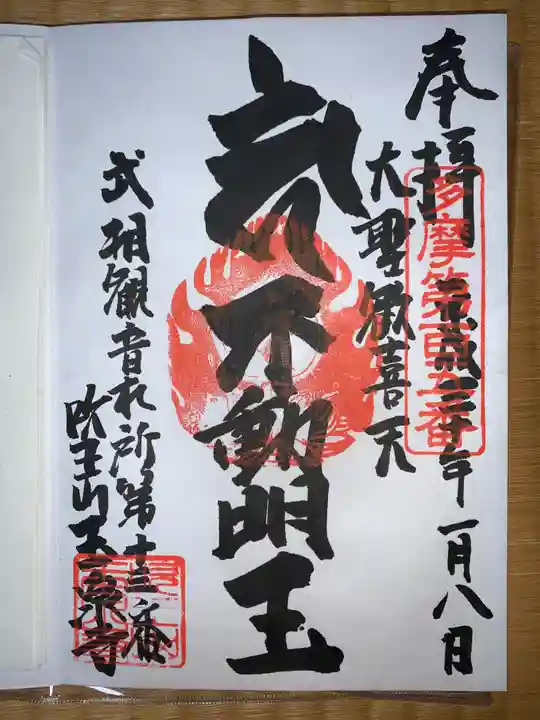 奉拝
多摩第百五番
十年一月八日
大聖歓喜天
不動明王
武相観音札所第十三番
山玉泉寺